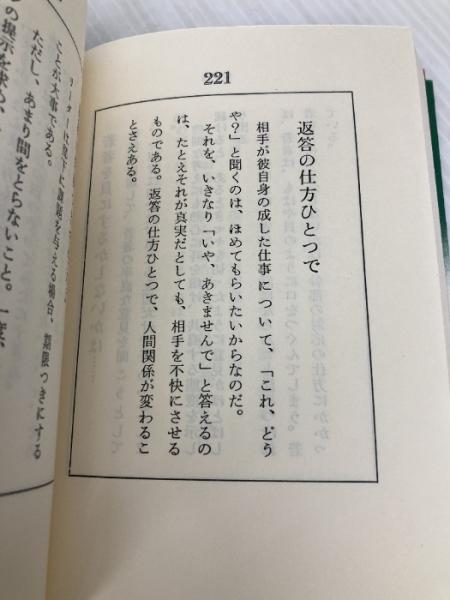 221
返答の仕方ひとつで
相手が彼自身の成した仕事について、「これ、どう
や?」と聞くのは、ほめてもらいたいからなのだ。
それを、いきなり「いや、あきませんで」と答えるの
は、たとえそれが真実だとしても、相手を不快にさせる
ものである。返答の仕方ひとつで、人間関係が変わるこ
とさえある。
を与える場合、期限つきにする
ことが大事である。
ただし、あまり間をとらないこと。一度、
の提示を求め